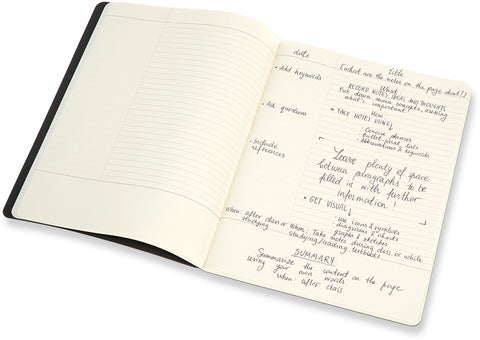 date
title
[what are the notes on the page about?]
• Add keywords
What:
RECORD NOTES, IDEAS AND THOUGHTS
Put down main concepts, stressing
what's important
How:
• Ask questions
• TAKE NOTES USING
- Concise phrases
- Bullet point lists
- Abbreviations & keywords
• Include
references
Leave plenty of space
between paragraphs to be
filled in with further
information!
• GET VISUAL
- Use icons & symbols
diagrams & charts
graphs & sketches
When after class or when
studying
When: Take notes during class or while
studying/reading textbooks
SUMMARY
Summarize the content on the page
using your own words
when after class